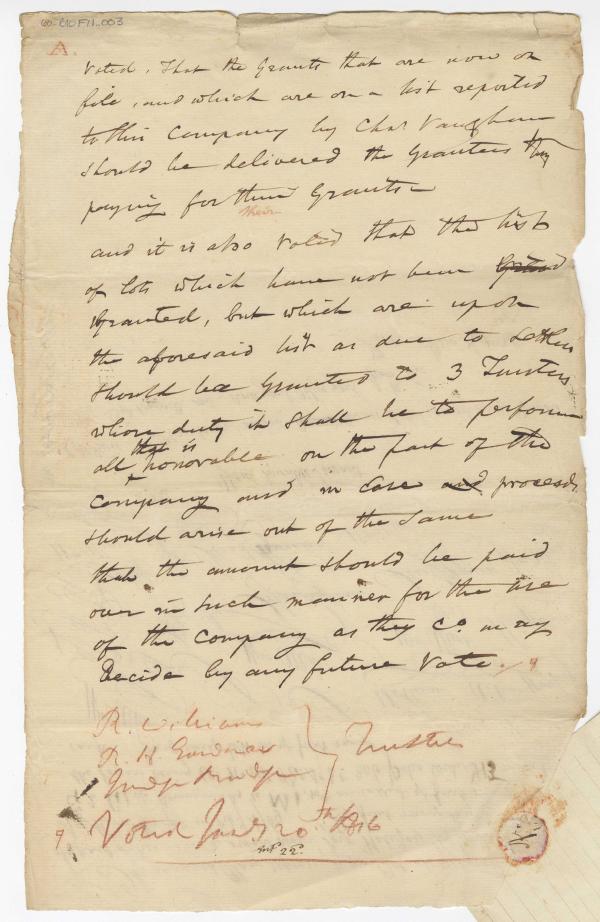 60-810 F11..003
A.
Voted. That the Grants that are now on
file, and which are on a list reported
to this Company by Chas Vaughan
should be delivered the Grantees they
paying for their Grants
their
and it is also Voted that the list
of lots which have not been
Granted, but which are upon
the aforesaid list as due to Settlers
should be Granted to 3 Trustees
whose duty it shall be to perform
that is
all honorable on the part of the
Company and in case and proceeds
should arise out of the same
that the amount should be paid
over in such manner for the use
of the Company as they Co. may
Decide by any future Vote.
R. Williams
R. H. Gardiner
Judge Bridge
Trustees
9. Voted Jany 20th 1816
22.